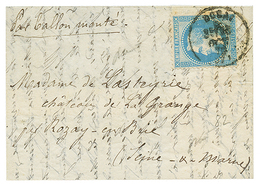 Par Ballon monté
Madame de Lasteyrie
château de La Grange
par Rozay-en-Brie
(Seine-&-Marne)